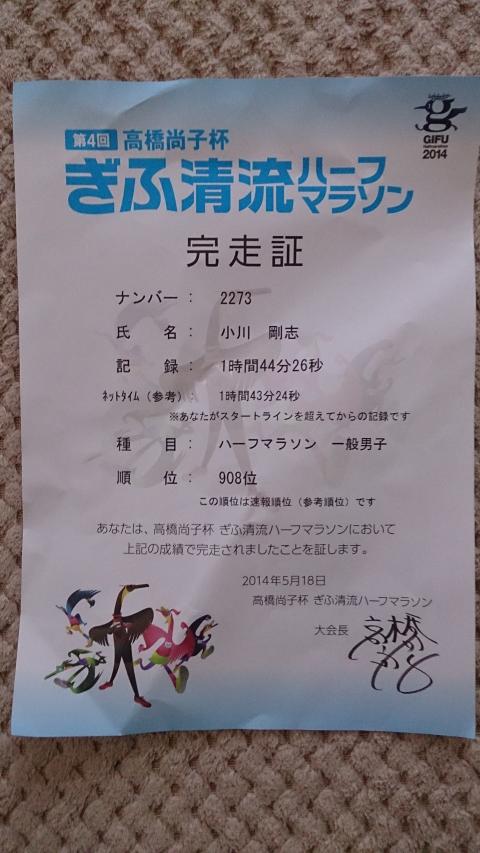 第4回 高橋尚子杯
ぎふ清流ハーフマラソン
GIFU
2014
完走証
ナンバー： 2273
氏 名： 小川 剛志
記 録： 1時間44分26秒
ﾈｯﾄﾀｲﾑ（参考）： 1時間43分24秒
※あなたがスタートラインを超えてからの記録です
種 目： ハーフマラソン 一般男子
順 位： 908位
この順位は速報順位（参考順位）です
あなたは、高橋尚子杯 ぎふ清流ハーフマラソンにおいて
上記の成績で完走されましたことを証します。
2014年5月18日
高橋尚子杯 ぎふ清流ハーフマラソン
大会長